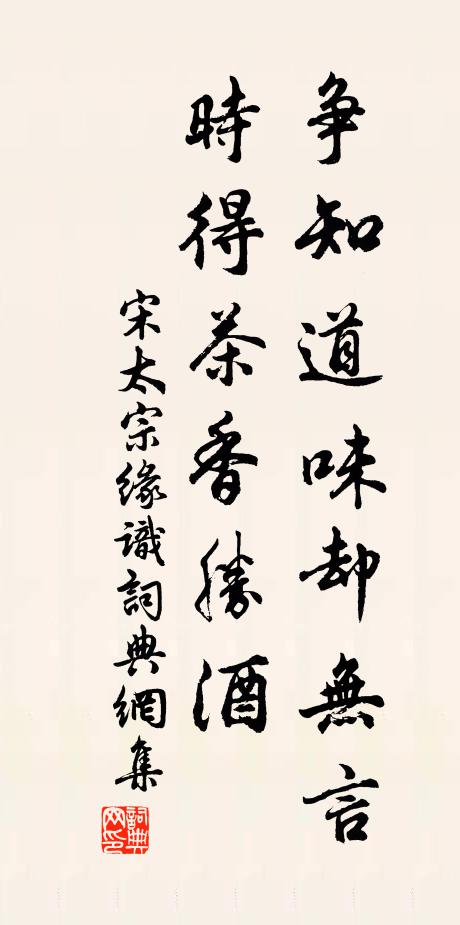 争知道味却無言
時得茶香勝酒
宋太宗緣識詞典網集
詞典網印